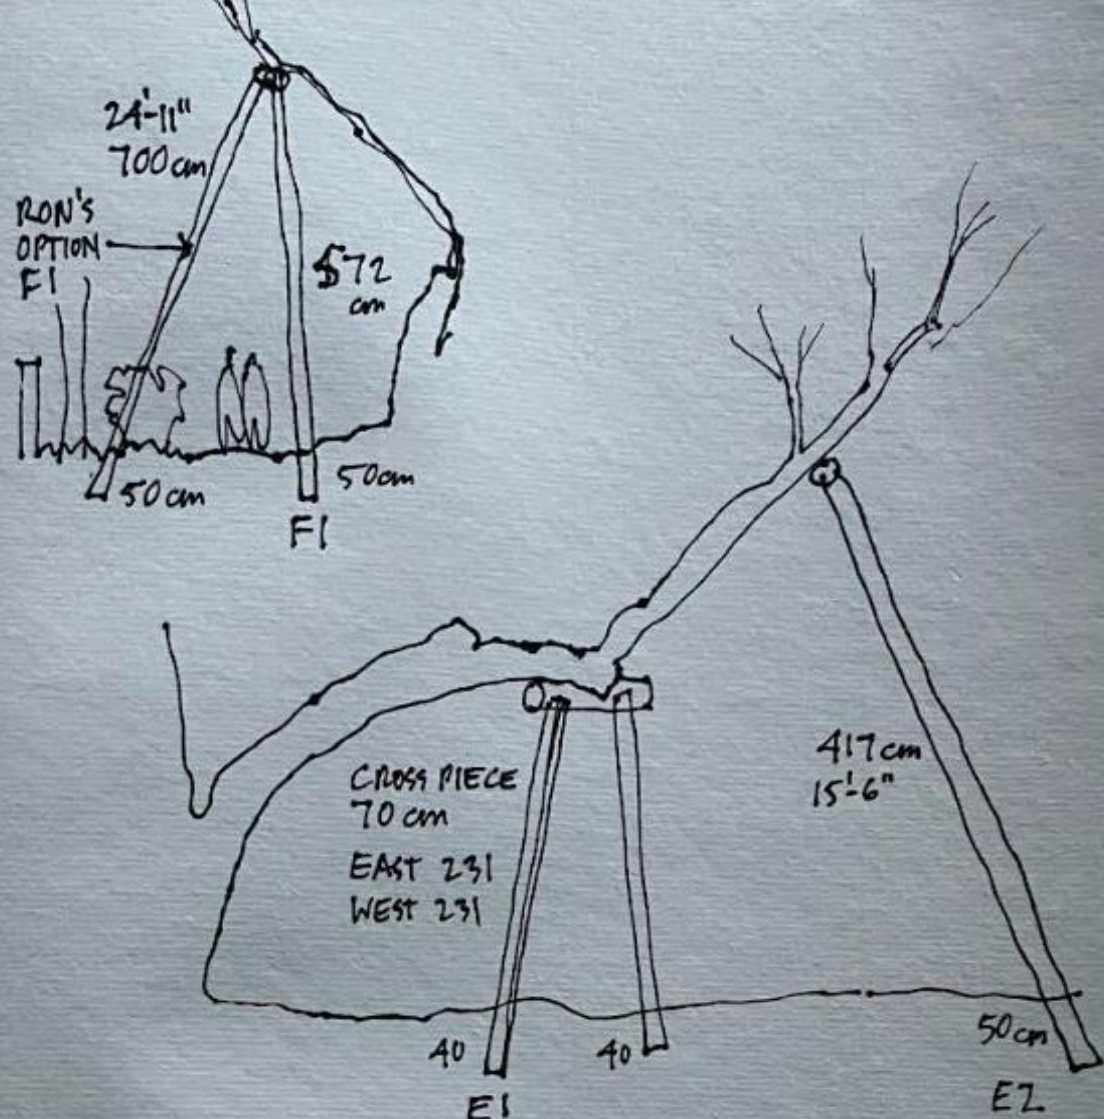 24'-11"
700 cm
RON'S
OPTION
F1
572
cm
50 cm
50cm
F1
CROSS PIECE
70 cm
EAST 231
WEST 231
417 cm
15'-6"
40
40
50 cm
E1
E2